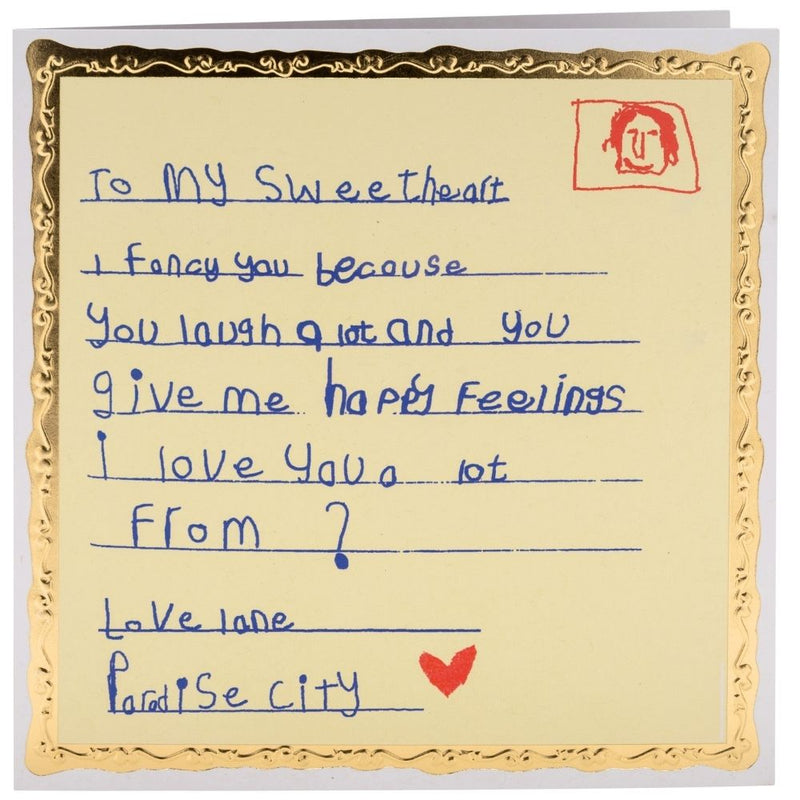 To My Sweetheart
i fancy you because
you laugh a lot and you
give me happy Feelings
i love you a lot
From ?
Love lane
Paradise city